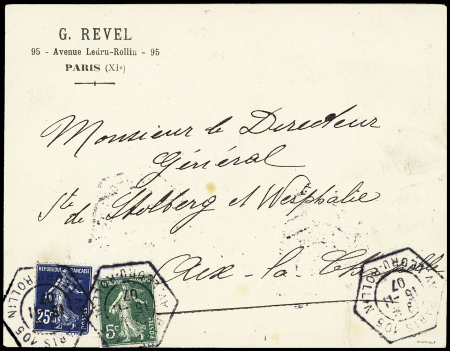 G. REVEL
95 - Avenue Ledru-Rollin - 95
PARIS (XIe)
Monsieur le Directeur
Général
Sté de Stolberg et Westphalie
Aix-la-Chapelle
REPUBLIQUE FRANCAISE
25c POSTES
REPUBLIQUE FRANCAISE
5c POSTES
PARIS 105
AV. LEDRU-ROLLIN
07